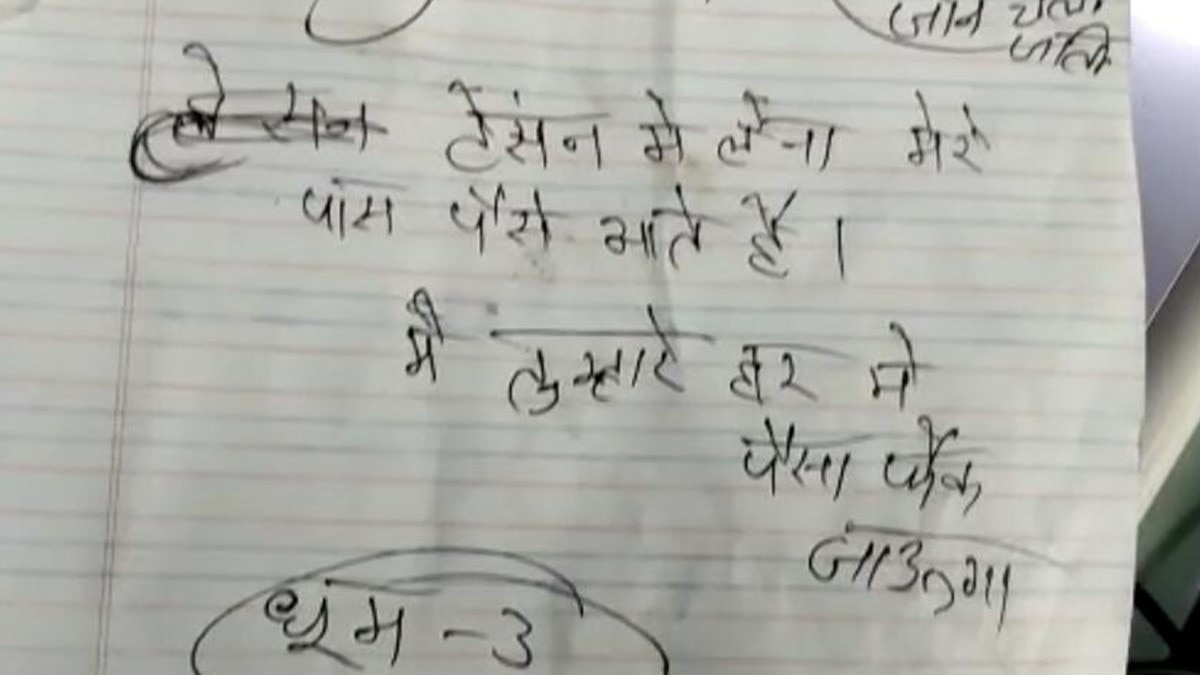 जाने
टेसंन मे लेना मेरे
पास पैसे आते हैं।
मै तुम्हारे घर मे
पैसा फेंक
जाउगा
धूम-3